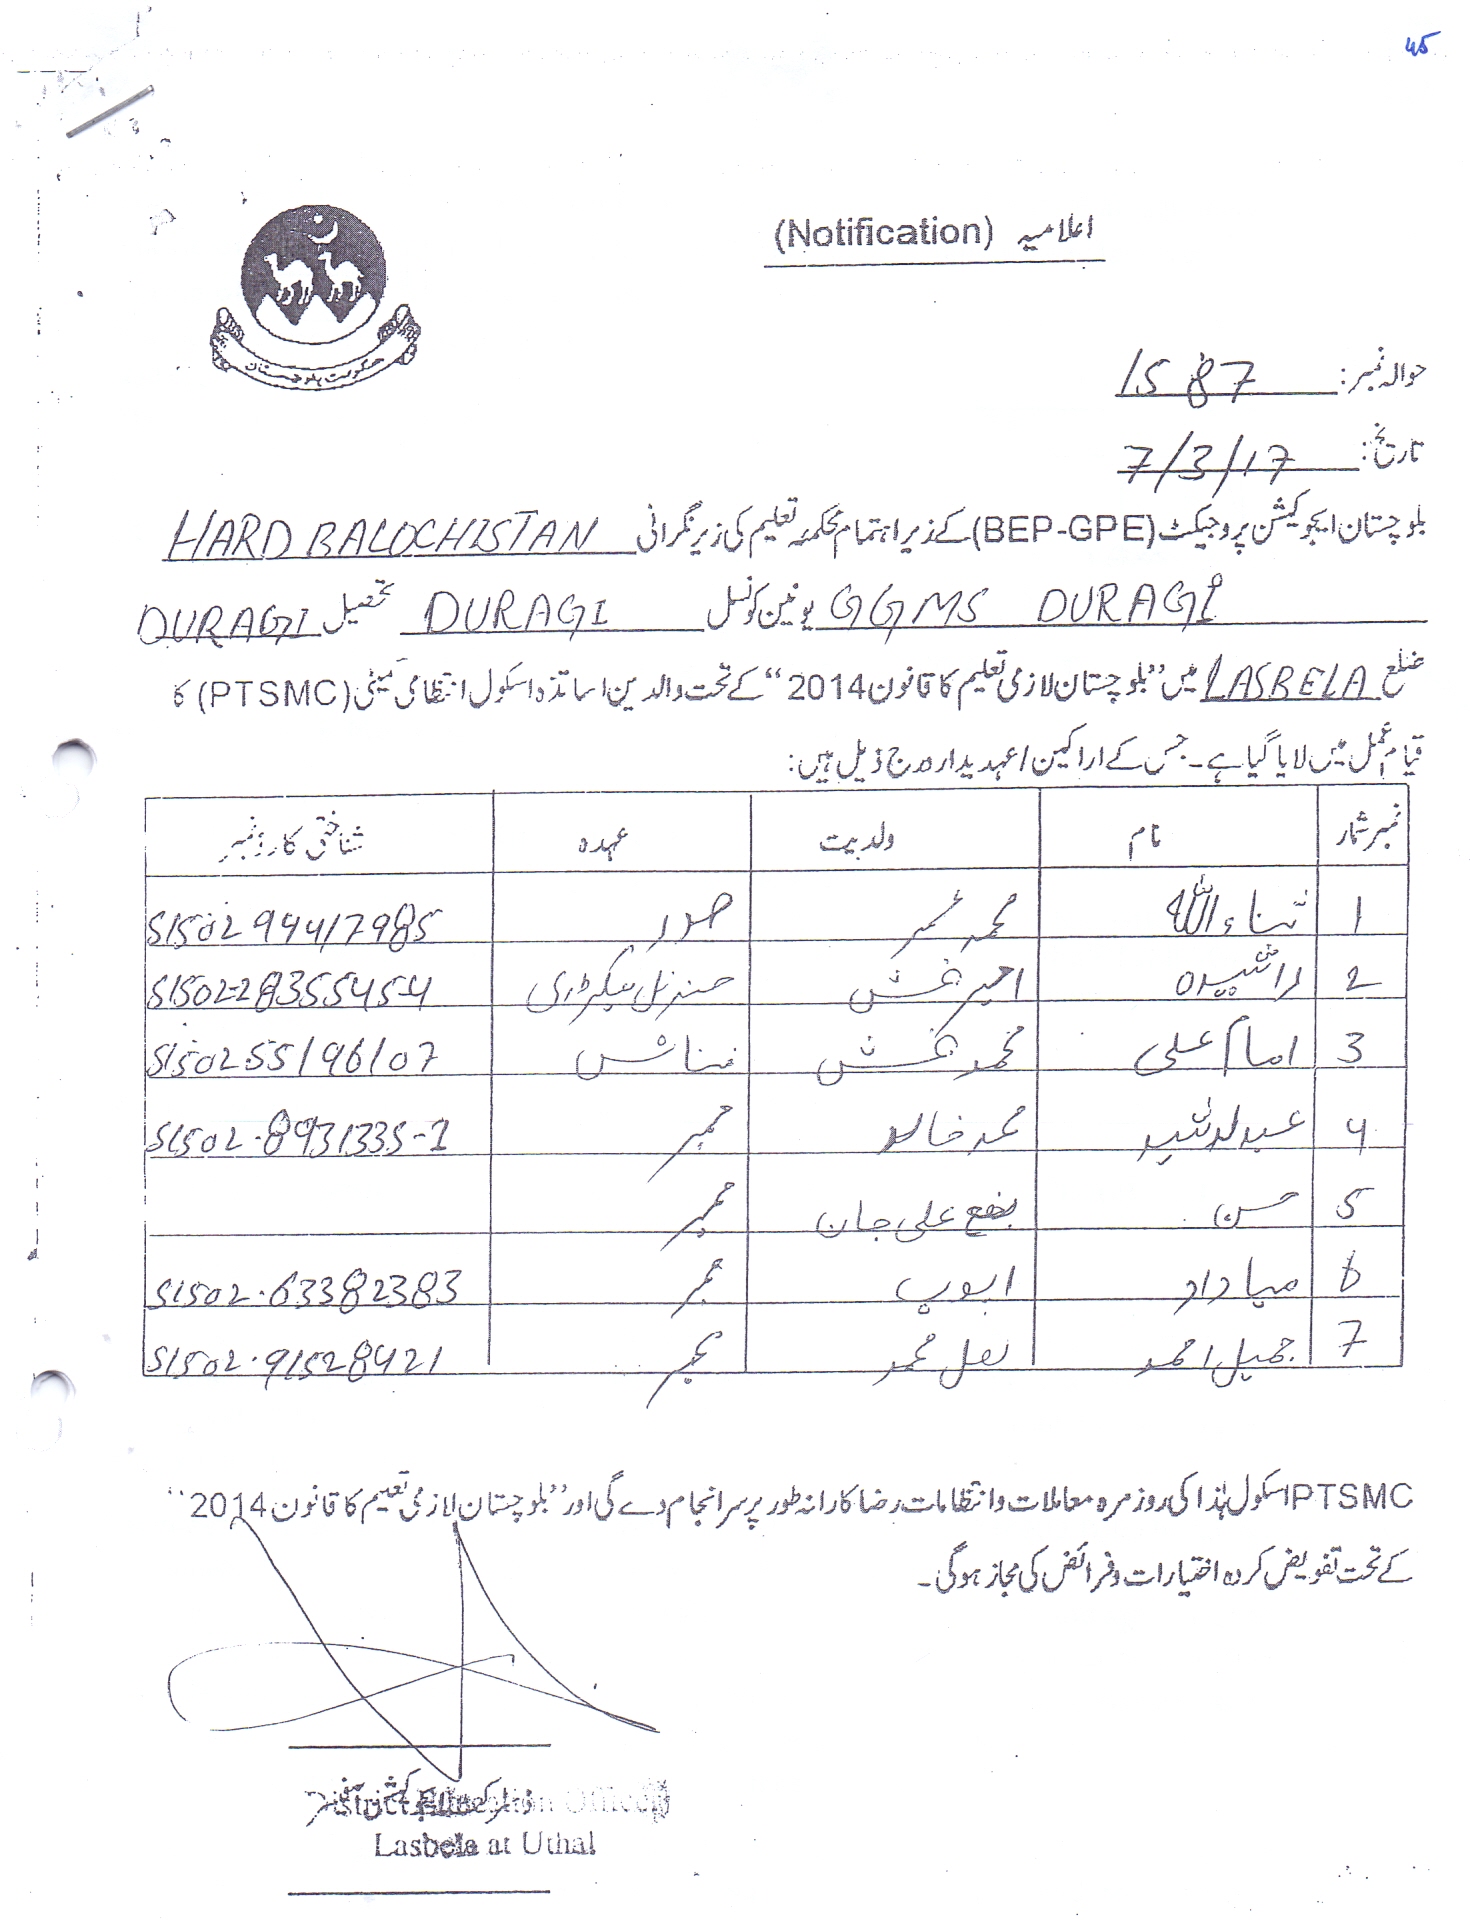 45
اعلامیہ (Notification)
حکومت بلوچستان
حوالہ نمبر: 1587
تاریخ: 7/3/17
بلوچستان ایجوکیشن پروجیکٹ (BEP-GPE) کے زیر اہتمام محکمہ تعلیم کی زیر نگرانی HARD BALOCHISTAN
GGMS DURAGI یونین کونسل DURAGI تحصیل DURAGI
ضلع LASBELA میں ”بلوچستان لازمی تعلیم کا قانون 2014“ کے تحت والدین اساتذہ اسکول انتظامی کمیٹی (PTSMC) کا
قیام عمل میں لایا گیا ہے۔ جس کے اراکین / عہدیدار درج ذیل ہیں:
نمبر شمار نام ولدیت عہدہ شناختی کارڈ نمبر
1 ثناء اللہ محمد عمر صدر 5150294417985
2 راشیدہ امیر بخش جنرل سیکرٹری 51502-2835545-4
3 امام علی محمد بخش فنانس 5150255196107
4 عبدالرشید محمد خالد ممبر 51502-8931335-1
5 حسن علی جان ممبر
6 میا داد ایوب ممبر 51502-63382383
7 جمیل احمد لعل محمد ممبر 51502-91528421
PTSMC اسکول ہٰذا کی روزمرہ معاملات و انتظامات رضاکارانہ طور پر سرانجام دے گی اور ”بلوچستان لازمی تعلیم کا قانون 2014“
کے تحت تفویض کردہ اختیارات و فرائض کی مجاز ہوگی۔
District Education Officer
Lasbela at Uthal